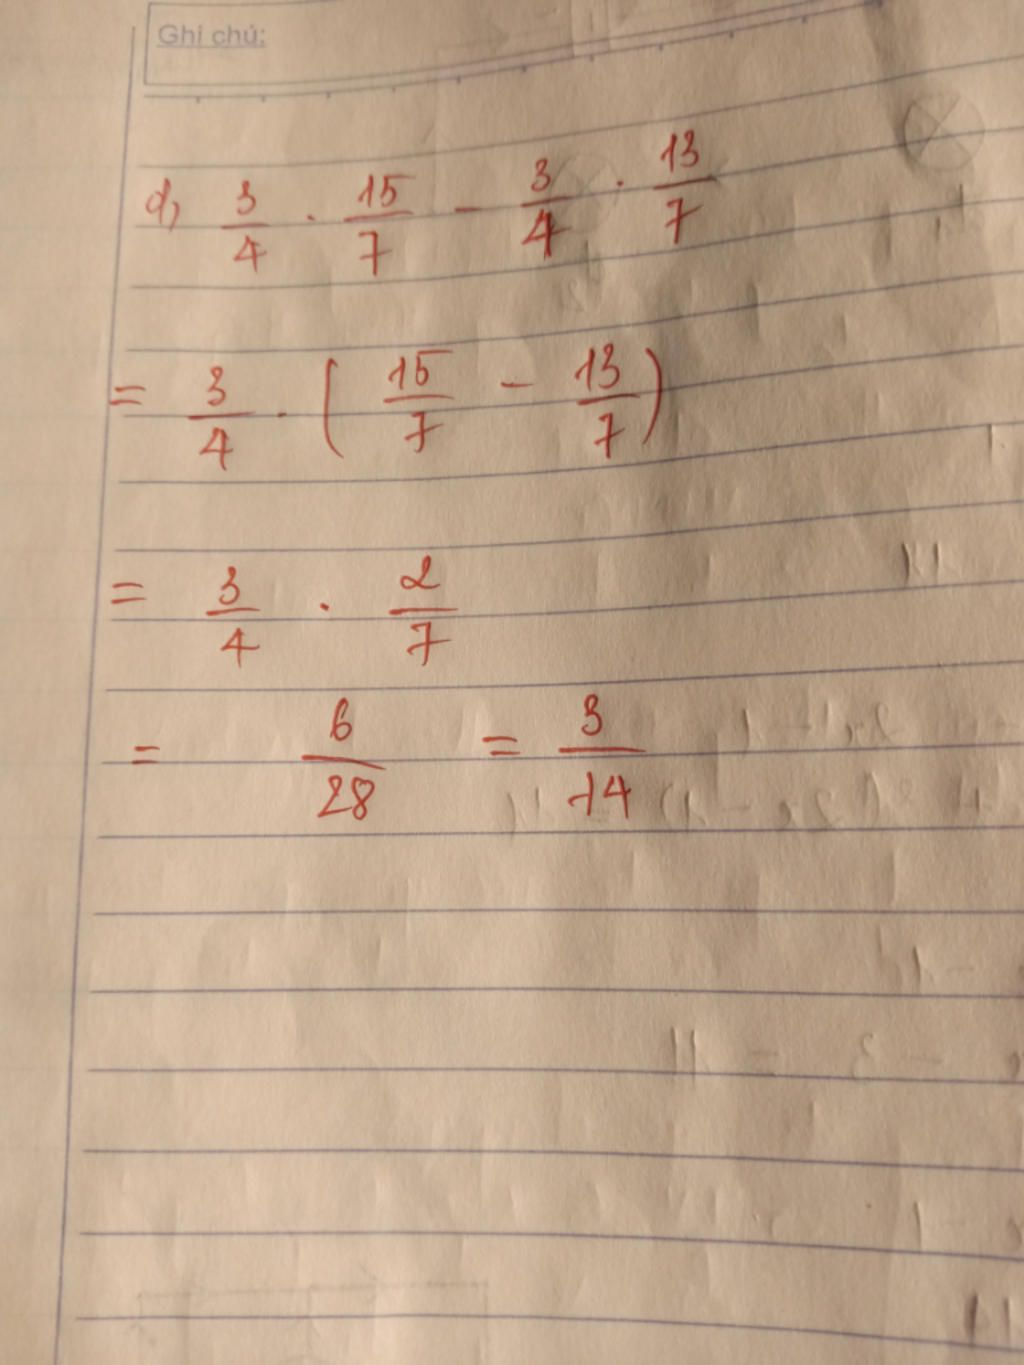 Ghi chú:
d, 3/4 . 15/7 - 3/4 . 13/7
= 3/4 . ( 15/7 - 13/7 )
= 3/4 . 2/7
= 6/28 = 3/14